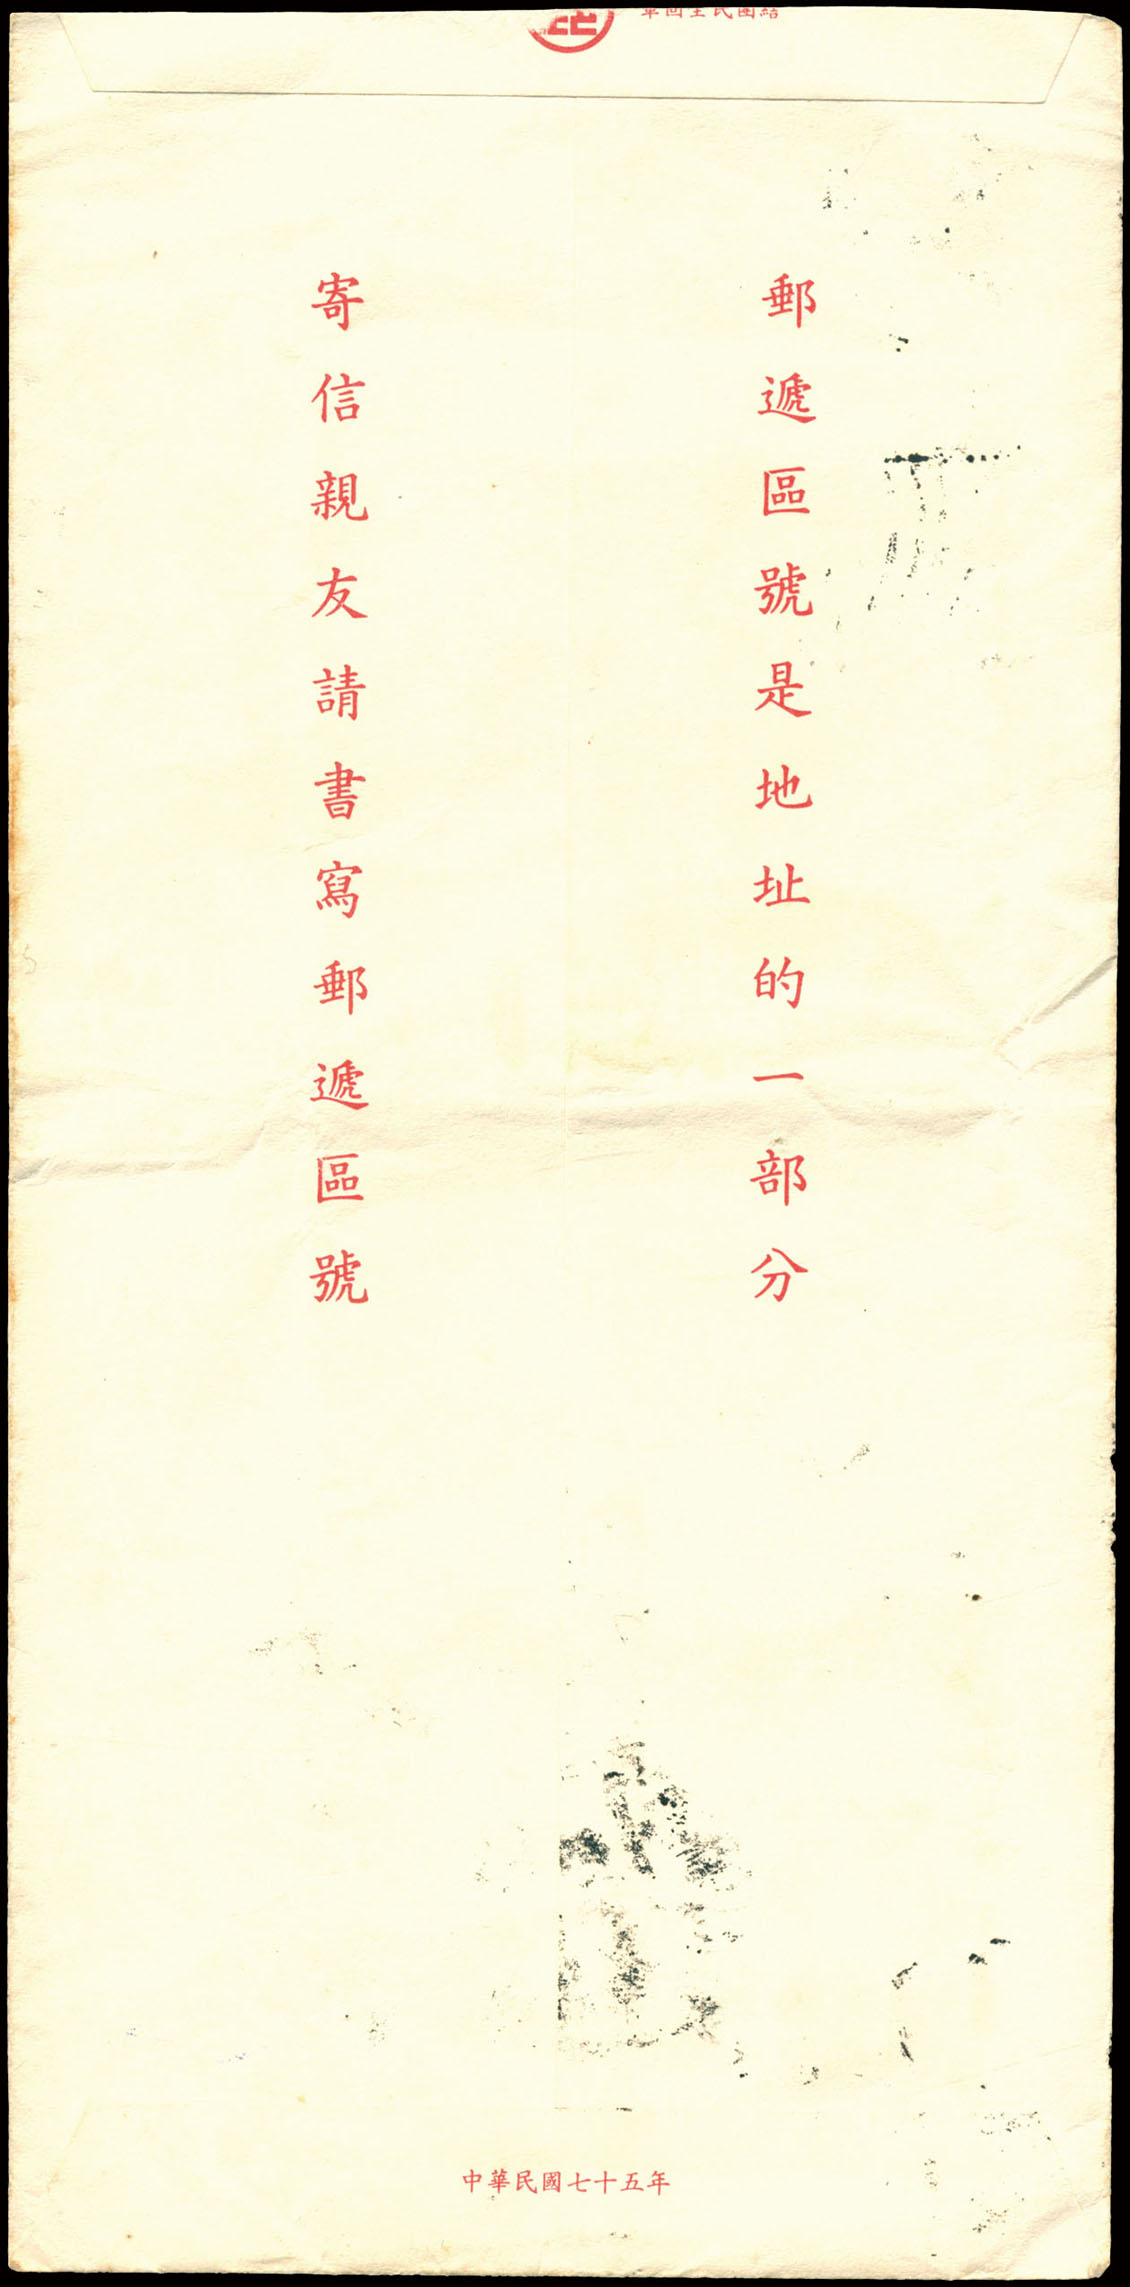 軍固全民團結
郵遞區號是地址的一部分
寄信親友請書寫郵遞區號
中華民國七十五年